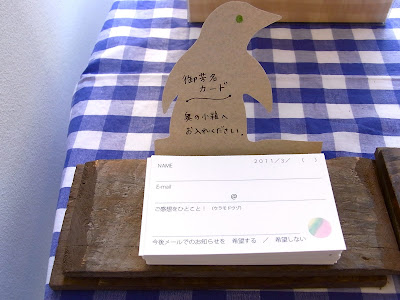 御芳名
カード
奥の小箱へ
お入れください。
NAME 2011/3/ ( )
E-mail
@
ご感想をひとこと! (ウラもドウゾ)
今後メールでのお知らせを 希望する / 希望しない